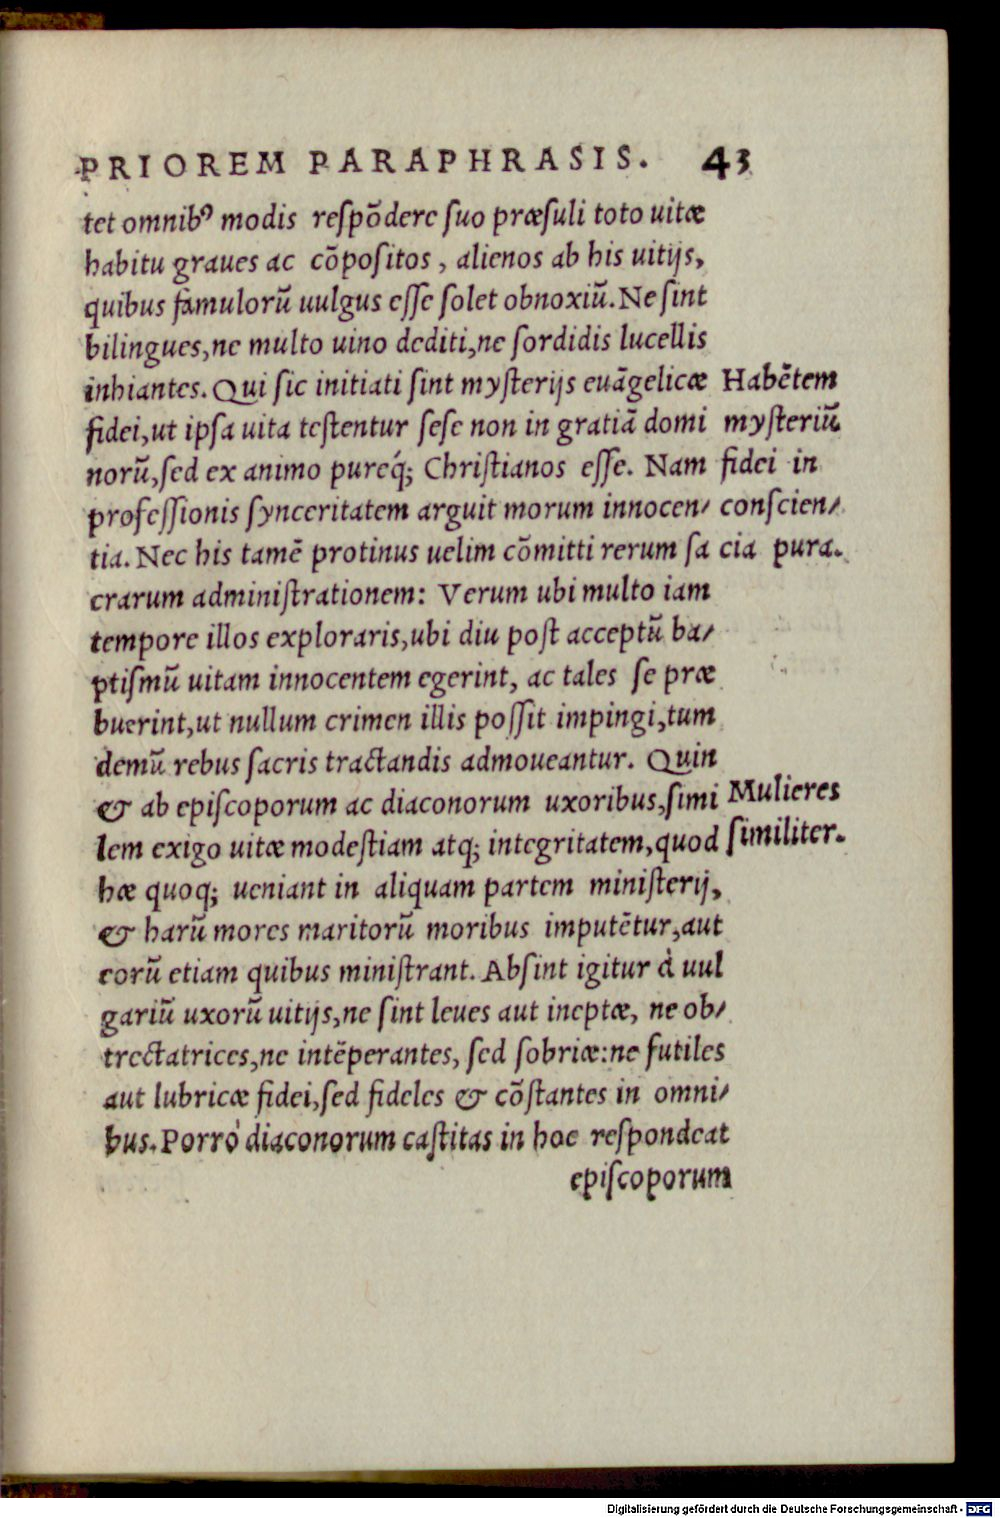 PRIOREM PARAPHRASIS. 43
tet omnibꝰ modis reſpõdere ſuo præſuli toto uitæ
habitu graues ac cõpoſitos, alienos ab his uitijs,
quibus famulorũ uulgus eſſe ſolet obnoxiũ. Ne ſint
bilingues, ne multo uino dediti, ne ſordidis lucellis
inhiantes. Qui ſic initiati ſint myſterijs euãgelicæ
fidei, ut ipſa uita teſtentur ſeſe non in gratiã domi
norũ, ſed ex animo pureq́; Chriſtianos eſſe. Nam
profeſſionis ſynceritatem arguit morum innocen/
tia. Nec his tamẽ protinus uelim cõmitti rerum ſa
crarum adminiſtrationem: Verum ubi multo iam
tempore illos exploraris, ubi diu poſt acceptũ ba/
ptiſmũ uitam innocentem egerint, ac tales ſe præ
buerint, ut nullum crimen illis poſſit impingi, tum
demũ rebus ſacris tractandis admoueantur. Quin
& ab epiſcoporum ac diaconorum uxoribus, ſimi
lem exigo uitæ modeſtiam atq; integritatem, quod
hæ quoq; ueniant in aliquam partem miniſterij,
& harũ mores maritorũ moribus imputẽtur, aut
eorũ etiam quibus miniſtrant. Abſint igitur à uul
gariũ uxorũ uitijs, ne ſint leues aut ineptæ, ne ob/
trectatrices, ne intẽperantes, ſed ſobriæ: ne futiles
aut lubricæ fidei, ſed fideles & cõſtantes in omni/
bus. Porrò diaconorum caſtitas in hoc reſpondeat
epiſcoporum
Habẽtem
myſteriũ
fidei in
conſcien/
cia pura.
Mulieres
ſimiliter.
Digitalisierung gefördert durch die Deutsche Forschungsgemeinschaft - DFG